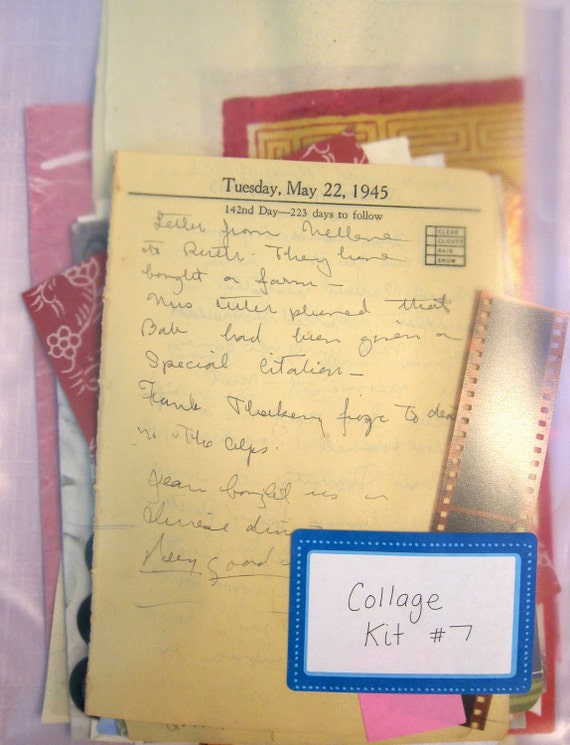 Tuesday, May 22, 1945
142nd Day—223 days to follow
CLEAR
CLOUDY
RAIN
SNOW
Letter from Nellene
to Ruth. They have
bought a farm —
Mrs phoned that
Bab had been given a
Special Citation —
Frank froze to dea
in the alps.
Jean bought us a
Chinese din
Very good
Collage
Kit #7